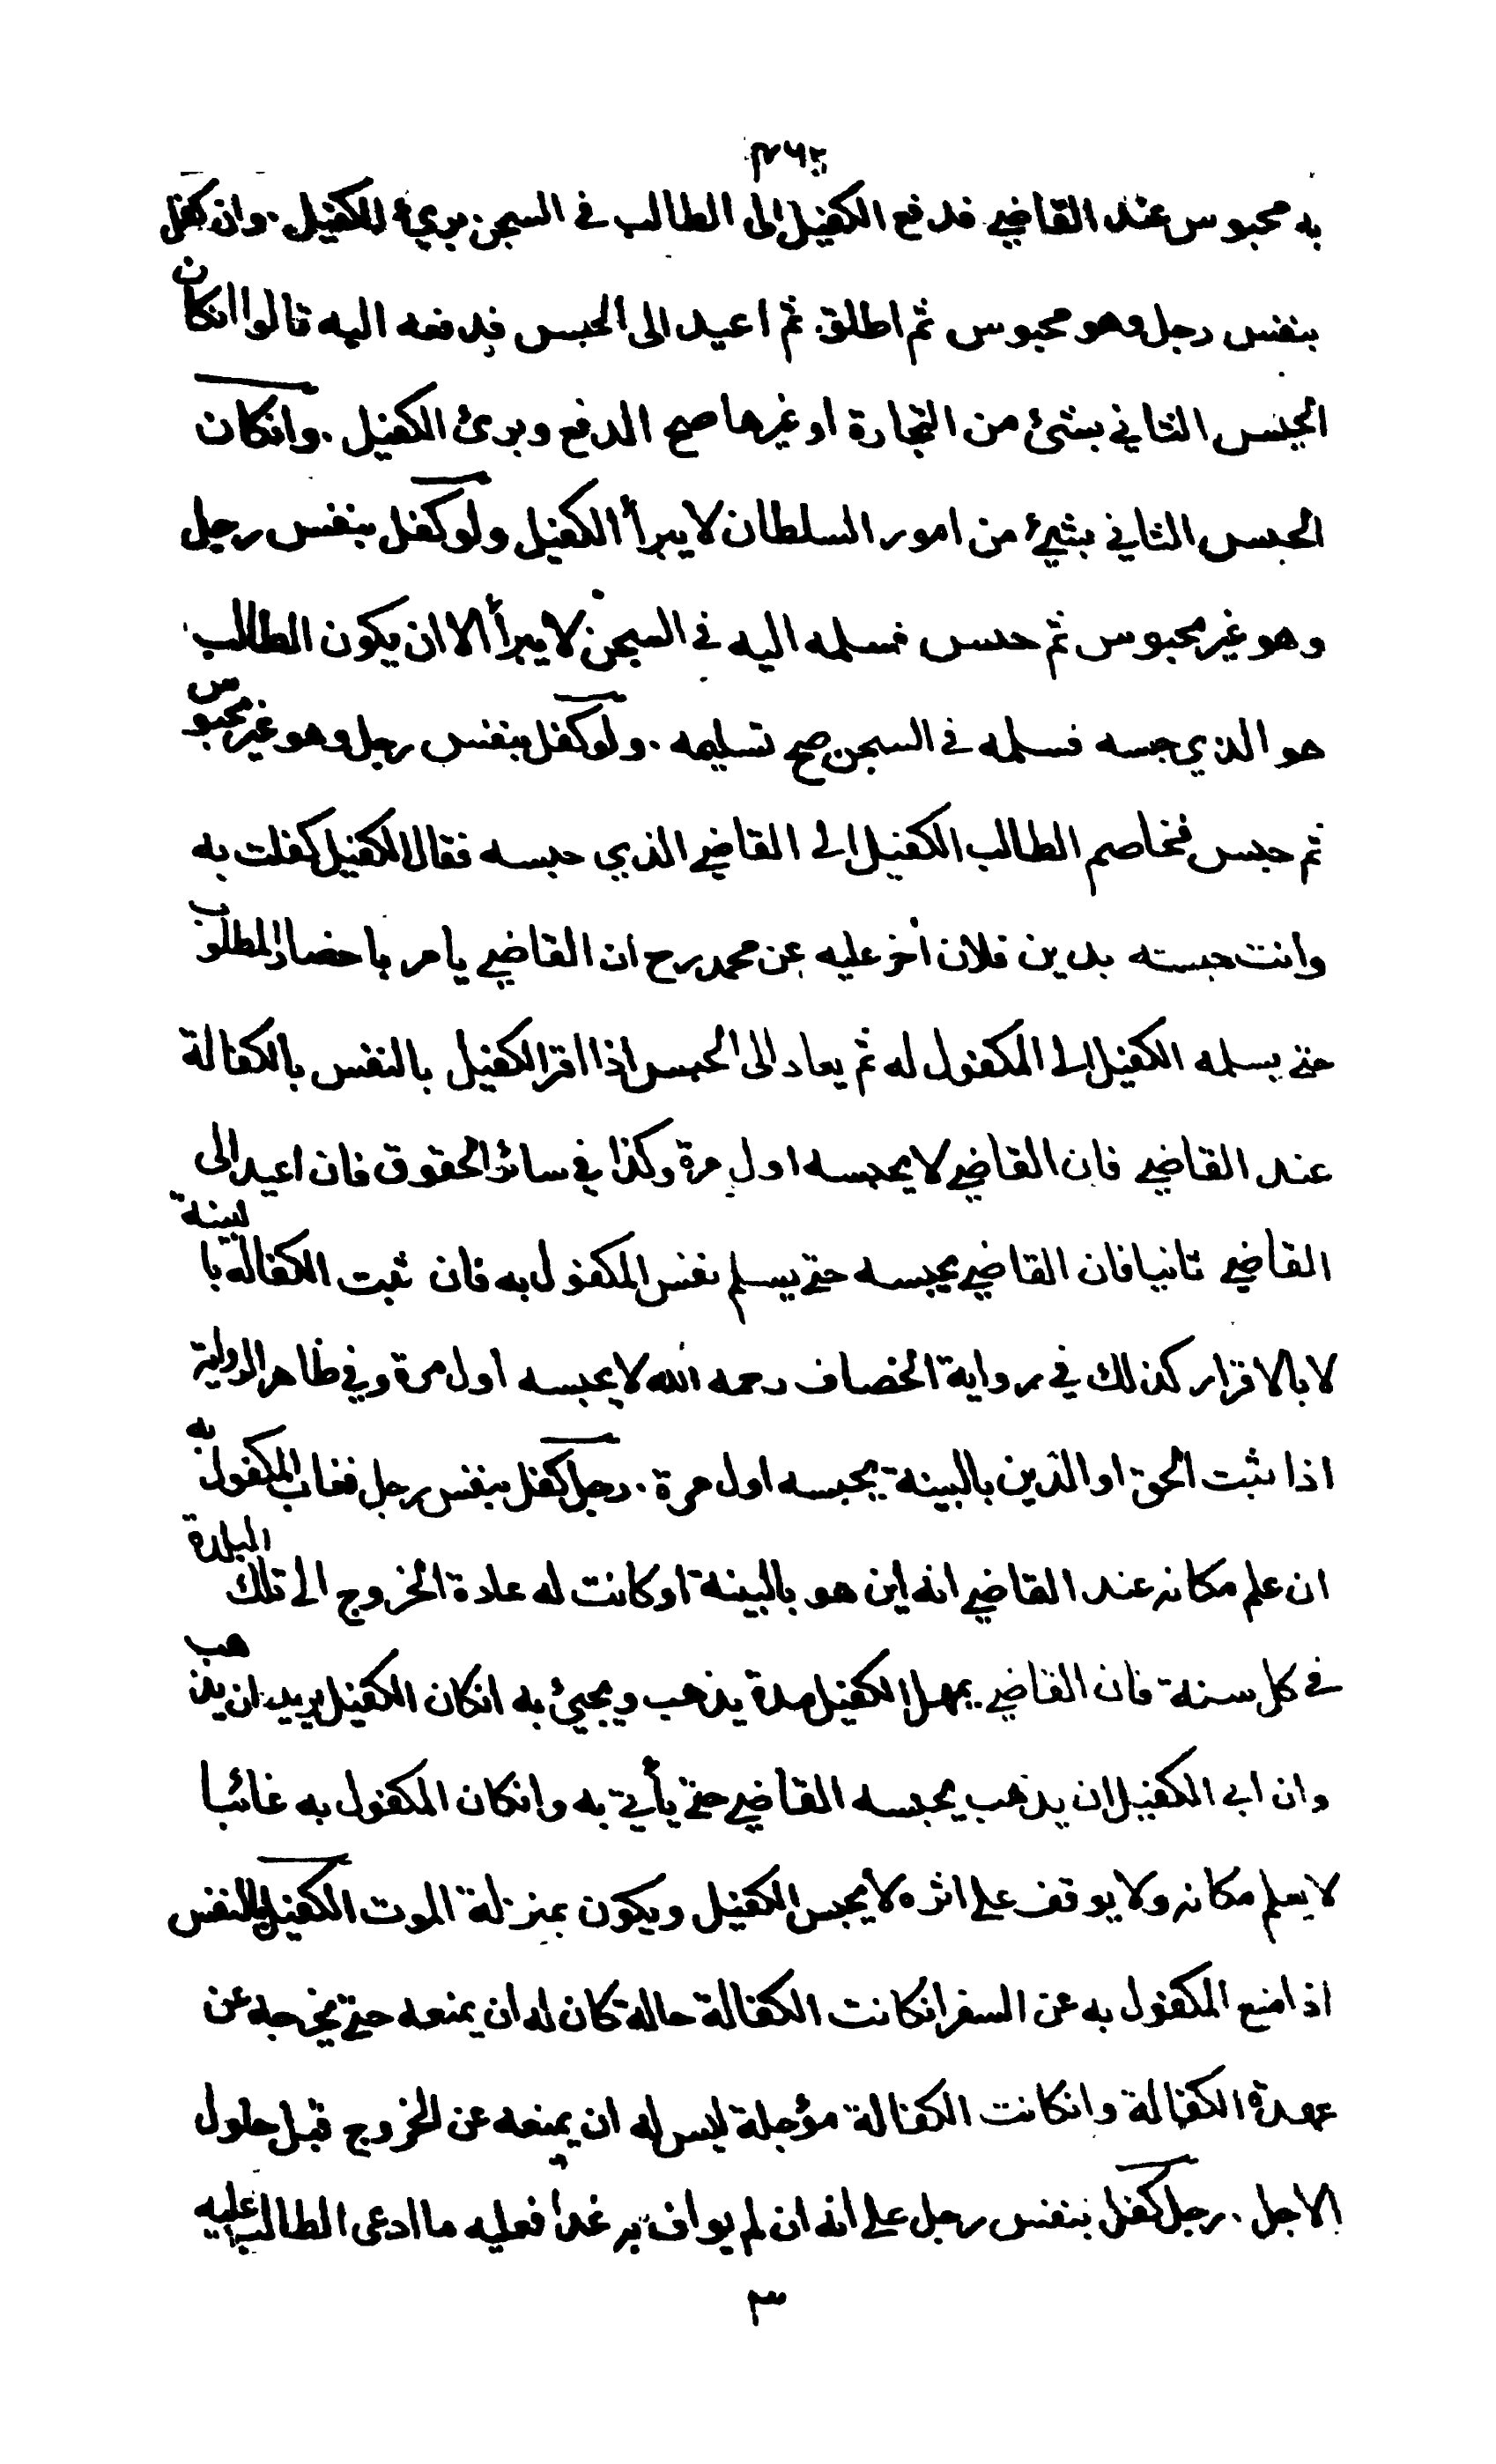 به محبوس عند القاضي فدفع الكفيل الى الطالب في السجن بريء الكفيل . وان كفل
بنفس رجل وهو محبوس ثم اطلق . ثم اعيد الى الحبس فدفعه اليه قالوا انكان
الحبس الثاني بشئ من التجارة او غيرها صح الدفع وبرئ الكفيل . وانكان
الحبس الثاني بشيء من امور السلطان لا يبرأ الكفيل ولو كفل بنفس رجل
وهو غير محبوس ثم حبس فسلمه اليه في السجن لا يبرأ الا ان يكون الطالب
هو الذي حبسه فسلمه في السجن صح تسليمه . ولو كفل بنفس رجل وهو غير محبوس
ثم حبس فخاصم الطالب الكفيل الى القاضي الذي حبسه فقال الكفيل كفلت به
وانت حبسته بدين فلان اخر عليه عن محمد رح ان القاضي يامر باحضار المطلوب
حتى يسلمه الكفيل الى المكفول له ثم يعاد الى الحبس اذا اقر الكفيل بالنفس بالكفالة
عند القاضي فان القاضي لا يحبسه اول مرة وكذا في سائر الحقوق فان اعيد الى
القاضي ثانيا فان القاضي يحبسه حتى يسلم نفس المكفول به فان ثبت الكفالة بالبينة
لا بالاقرار كذلك في رواية الخصاف رحمه الله لا يحبسه اول مرة وفي ظاهر الرواية
اذا ثبت الحق او الدين بالبينة يحبسه اول مرة . رجل كفل بنفس رجل فغاب المكفول به
ان علم مكانه عند القاضي انه اين هو بالبينة او كانت له عادة الخروج الى تلك البلدة
في كل سنة فان القاضي يمهل الكفيل مدة يذهب ويجيئ به انكان الكفيل يريد ان يذهب
وان ابى الكفيل ان يذهب يحبسه القاضي حتى يأتي به وانكان المكفول به غائبا
لا يعلم مكانه ولا يوقف على اثره لا يحبس الكفيل ويكون بمنزلة الموت الكفيل بالنفس
اذا منع المكفول به عن السفر انكانت الكفالة حالة كان له ان يمنعه حتى يخرجه عن
عهدة الكفالة وانكانت الكفالة مؤجلة ليس له ان يمنعه عن الخروج قبل حلول
الاجل . رجل كفل بنفس رجل على انه ان لم يواف به غدا فعليه ما ادعى الطالب عليه